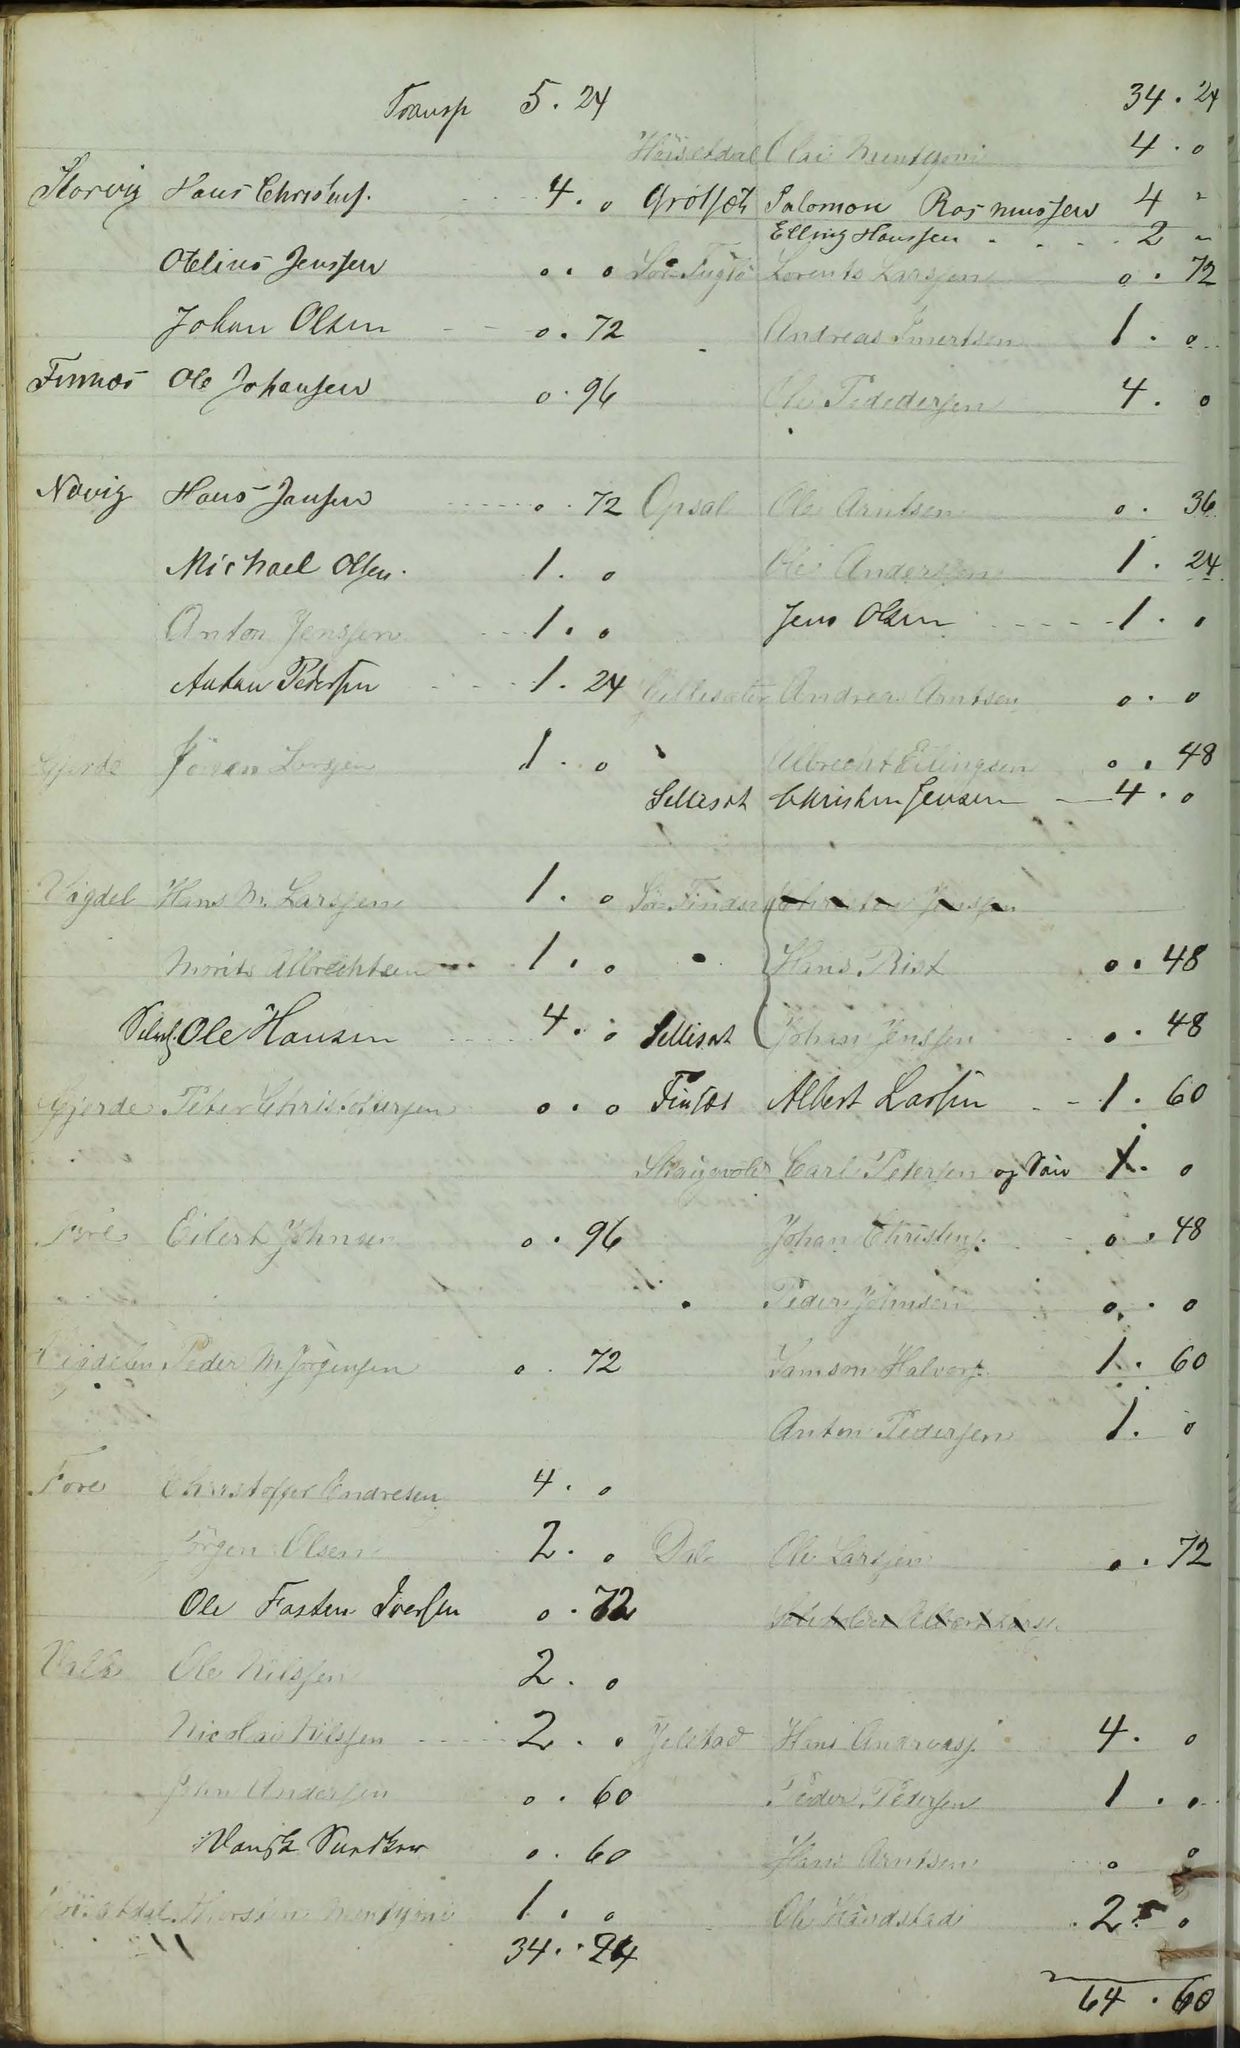 Transp 5 . 24
Storvig Hans Christens. 4 . 0
Otelius Jenssen 0 . 0
Johan Olsen 0 . 72
Finnæs Ole Johansen 0 . 96
Nævig Hans Jansen 0 . 72
Michael Olsen 1 . 0
Anton Jenssen 1 . 0
Anton Pedersen 1 . 24
Gjerde Johan Larssen 1 . 0
Vigdel Hans M. Larssen 1 . 0
Morits Albrechtsen 1 . 0
Ole Hansen 4 . 0
Gjerde Peter Christofersen 0 . 0
Fore Eilert Johnsen 0 . 96
Vigdelen Peder M. Jørgensen 0 . 72
Fore Christoffer Andresen 4 . 0
Jørgen Olsen 2 . 0
Ole Fasten Iversen 0 . 72
Valle Ole Nilssen 2 . 0
Nicolai Nilssen 2 . 0
Andersen 0 . 60
0 . 60
Mentzoni 1 . 0
34 . 24
34 . 24
Høisetdal Olai Mentzoni 4 . 0
Grøtsæt Salomon Rasmussen 4 "
Elling Hanssen 2 "
Sør-Fuglø Lorents Larssen 0 . 72
Andreas Imertsen 1 . 0
Ole Pededersen 4 . 0
Opsal Ole Arntsen 0 . 36
Ole Anderssen 1 . 24
Jens Olsen 1 . 0
Andreas Arntsen 0 . 0
" Albrecht Ellingsen 0 . 48
Sellisæt Christen Jensen 4 . 0
Christen Jenssen
" Hans Rist 0 . 48
Sellisæt Johan Jenssen 0 . 48
Finsæt Albert Larsen 1 . 60
Skaugvold Carl Petersen og Søn 1 . 0
Johan Christens. 0 . 48
" Peder Johnsen 0 . 0
Samson Halvors. 1 . 60
Anton Pedersen 1 . 0
Dal Ole Larssen 0 . 72
Albert Larss.
Jelstad Hans Andreass. 4 . 0
Peder Pedersen 1 . 0
Hans Arntsen 0 0
Ole Handstad 2 . 0
64 . 60